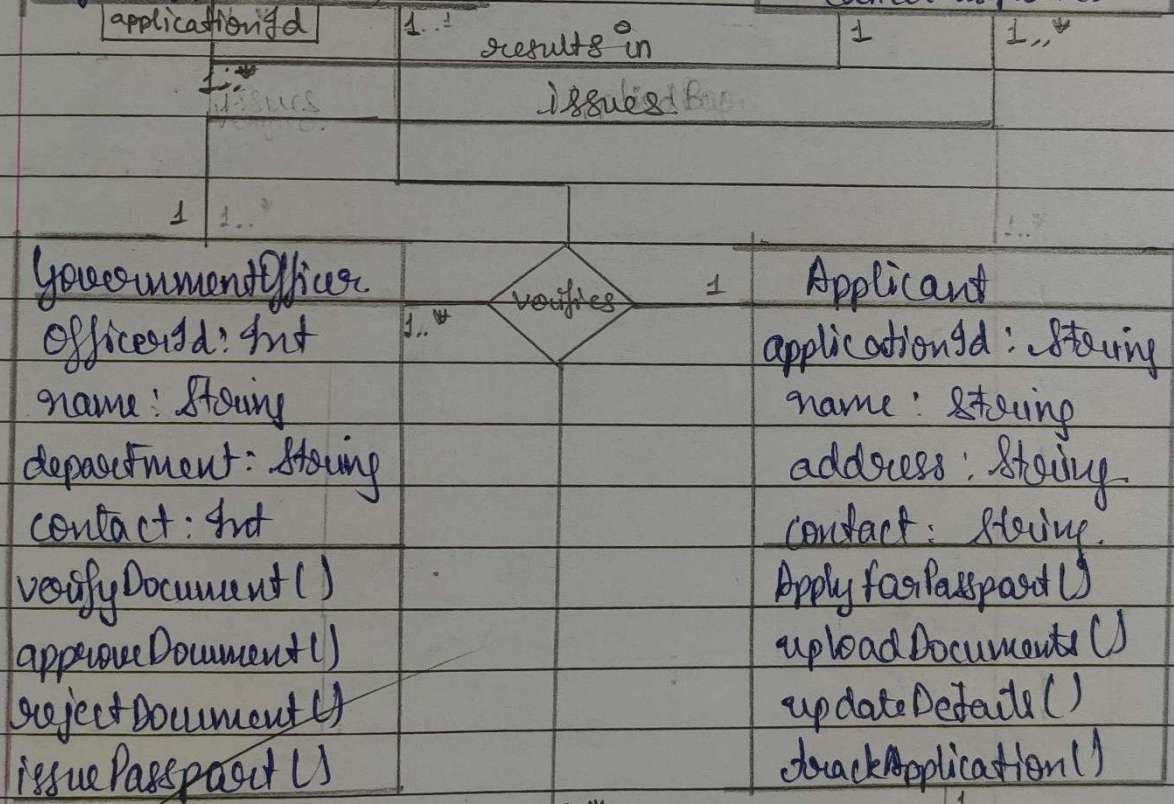 applicationId
1..1
results in
1
1..*
1..*
issues
issues
1
1..*
1..*
GovernmentOfficer
OfficerId: Int
name: String
department: String
contact: Int
verifyDocument()
approveDocument()
rejectDocument()
issuePasspart()
1..*
verifies
1
Applicant
applicationId: String
name: String
address: String
contact: String.
ApplyfarPasspart()
uploadDocuments()
updateDetails()
trackApplication()
1